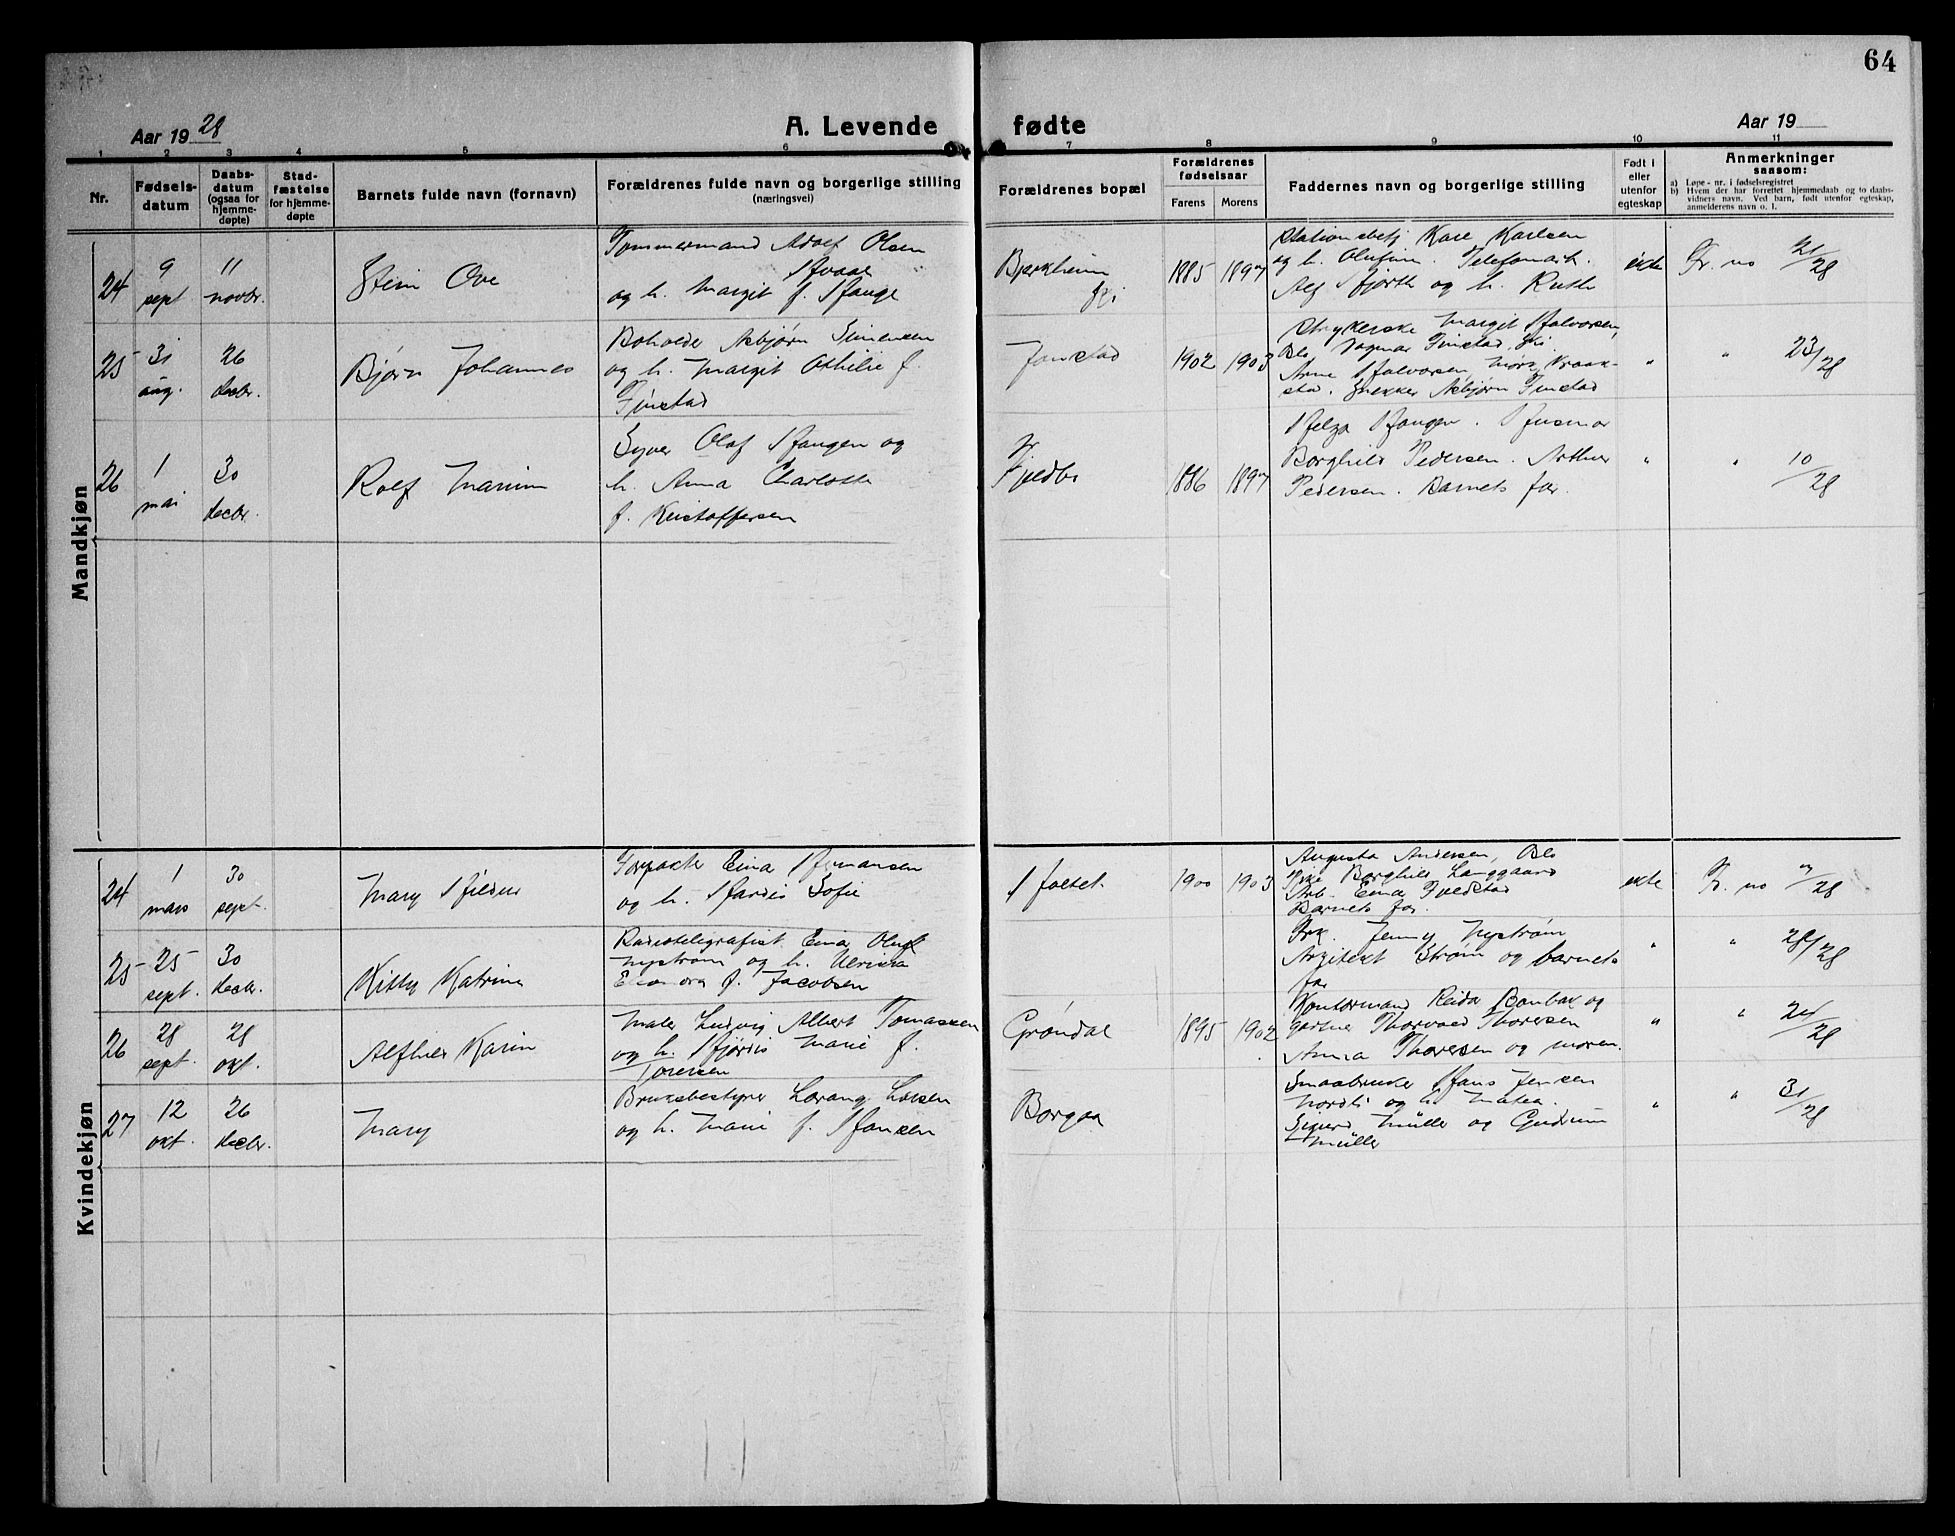 64
Aar 1928
A. Levende fødte
Aar 19
1 2 3 4 5 6 7 8 9 10 11
Nr.
Fødselsdatum
Daabsdatum (ogsaa for hjemmedøpte)
Stadfæstelse for hjemmedøpte
Barnets fulde navn (fornavn)
Forældrenes fulde navn og borgerlige stilling
(næringsvei)
Forældrenes bopæl
Forældrenes fødselsaar
Farens Morens
Faddernes navn og borgerlige stilling
Født i eller utenfor egteskap
Anmerkninger
saasom:
a) Løpe-nr. i fødselsregistret
b) Hvem der har forrettet hjemmedaab og to daabsvidners navn. Ved barn, født utenfor egteskap, anmelderens navn o. l.
Mandkjøn
24
9 sept
11 novbr.
Stein Ove
Tømmermand Adolf Olsen
og h. Margit f. Hauge
Bjerkheim
Ski
1885 1897
Stationsbetj Kare Karlsen
og h. Olufine. Telefonarb.
Alf Hjorth og h. Ruth
ekte
Fr. no 21/28
25
31 aug.
26 decbr.
Bjørn Johannes
Asbjørn Simensen
og h. Margit Othilie f.
Finstad
Finstad
1902 1903
Strykerske Margit Halvorsen,
Dagmar Finstad, Ski
Arne Halvorsen, Mørk, Kraakstad. Snekker Asbjørn Finstad
"
" 23/28
26
1 mai
30 decbr.
Rolf Marius
Syver Olaf Haugen og
h. Anna Charlotte
f. Kristoffersen
Fjeldbo
1886 1897
Helga Haugen. Husmor
Borghild Pedersen. Arthur
Pedersen. Barnets far.
"
" 10/28
Kvindekjøn
24
1 mars
30 sept.
Mary
Forpakter Einar Hermansen
og h. Sofie
Holtet
1900 1903
Augusta Andersen, Oslo
Frk. Borghild Langgaard
Arb. Einar
Barnets far.
ekte
Fr. no 7/28
25
25 sept.
30 decbr.
Kitty Katrine
Radiotelegrafist Einar Oluf
Nystrøm og h. Ulrikka
Eleonora f. Jacobsen
Frk. Jenny Nystrøm
Arkitekt Strøm og barnets
far
"
" 28/28
26
28 sept.
28 okt.
Alfhild Karin
Maler Ludvig Albert Tomassen
og h. Hjørdis Marie f.
Toresen
Grøndal
1895 1902
Kontormand Reidar og
gartner Thorvald Thoresen
Anna Thoresen og moren.
"
" 24/28
27
12 okt.
26 decbr.
Mary
Bruksbestyrer Lorang Larsen
og h. Marie f. Hansen
Borgen
Smaabruker Hans Jensen
Nordli og h. Matea.
Sigurd Müller og Gudrun
Müller
"
" 31/28